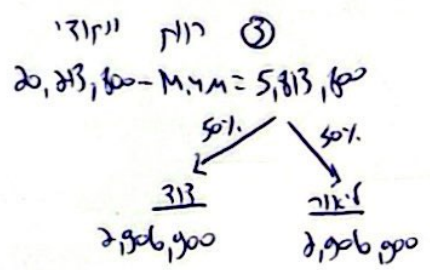 ③ רווח נקודתי
20,213,800 - מ.י.מ = 5,813,800
50% 50%
דוד ליאור
2,906,900 2,906,900